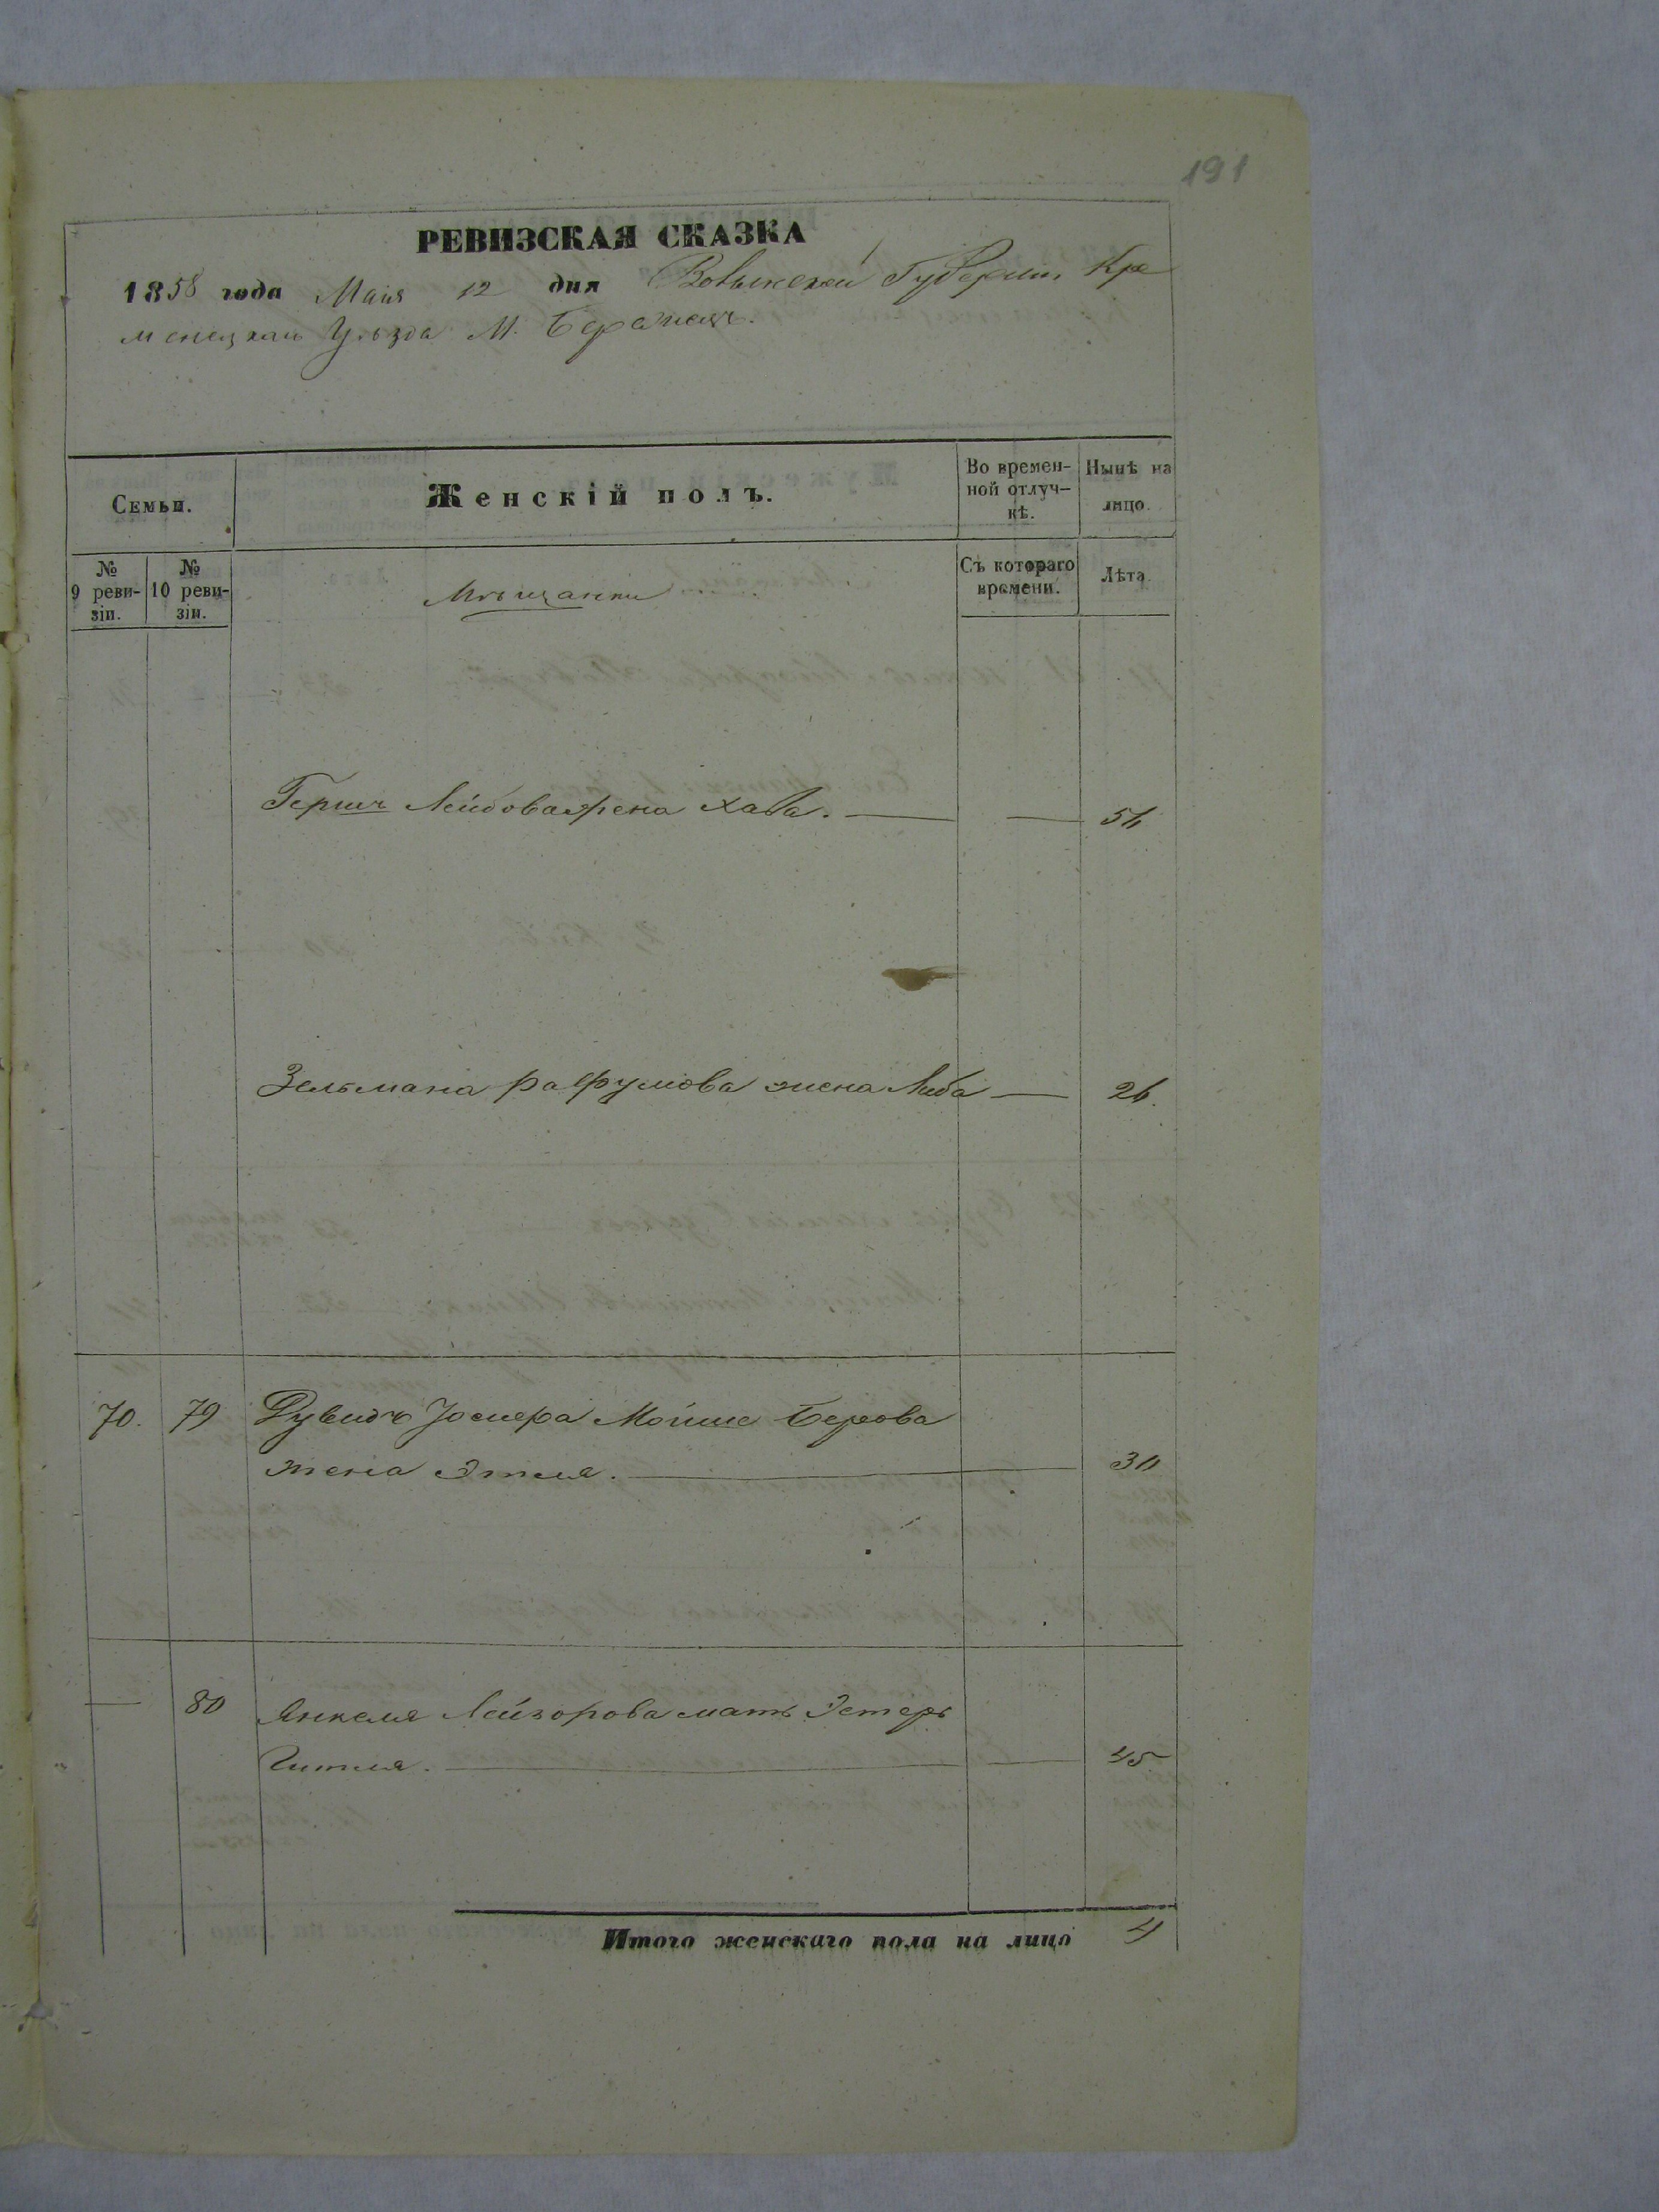 191
РЕВИЗСКАЯ СКАЗКА
1858 года Маия 12 дня Волынской Губернии Кре
менецкаго Уѣзда М. Бережецъ.
Семьи.
Женскій полъ.
Во времен-
ной отлуч-
кѣ.
Нынѣ на
лицо.
№
9 реви-
зіи.
№
10 реви-
зіи.
Мѣщанки
Съ котораго
времени.
Лѣта
Герша Лейбова жена Хава. — — 54
Зельмана Рафулова жена Либа — 26.
70. 79 Рувидъ Иосифа Мойше Берова
жена Этля. — 30
— 80 Янкеля Лейзорова мать Эстеръ
Гитля. — — 45
Итого женскаго пола на лицо 4